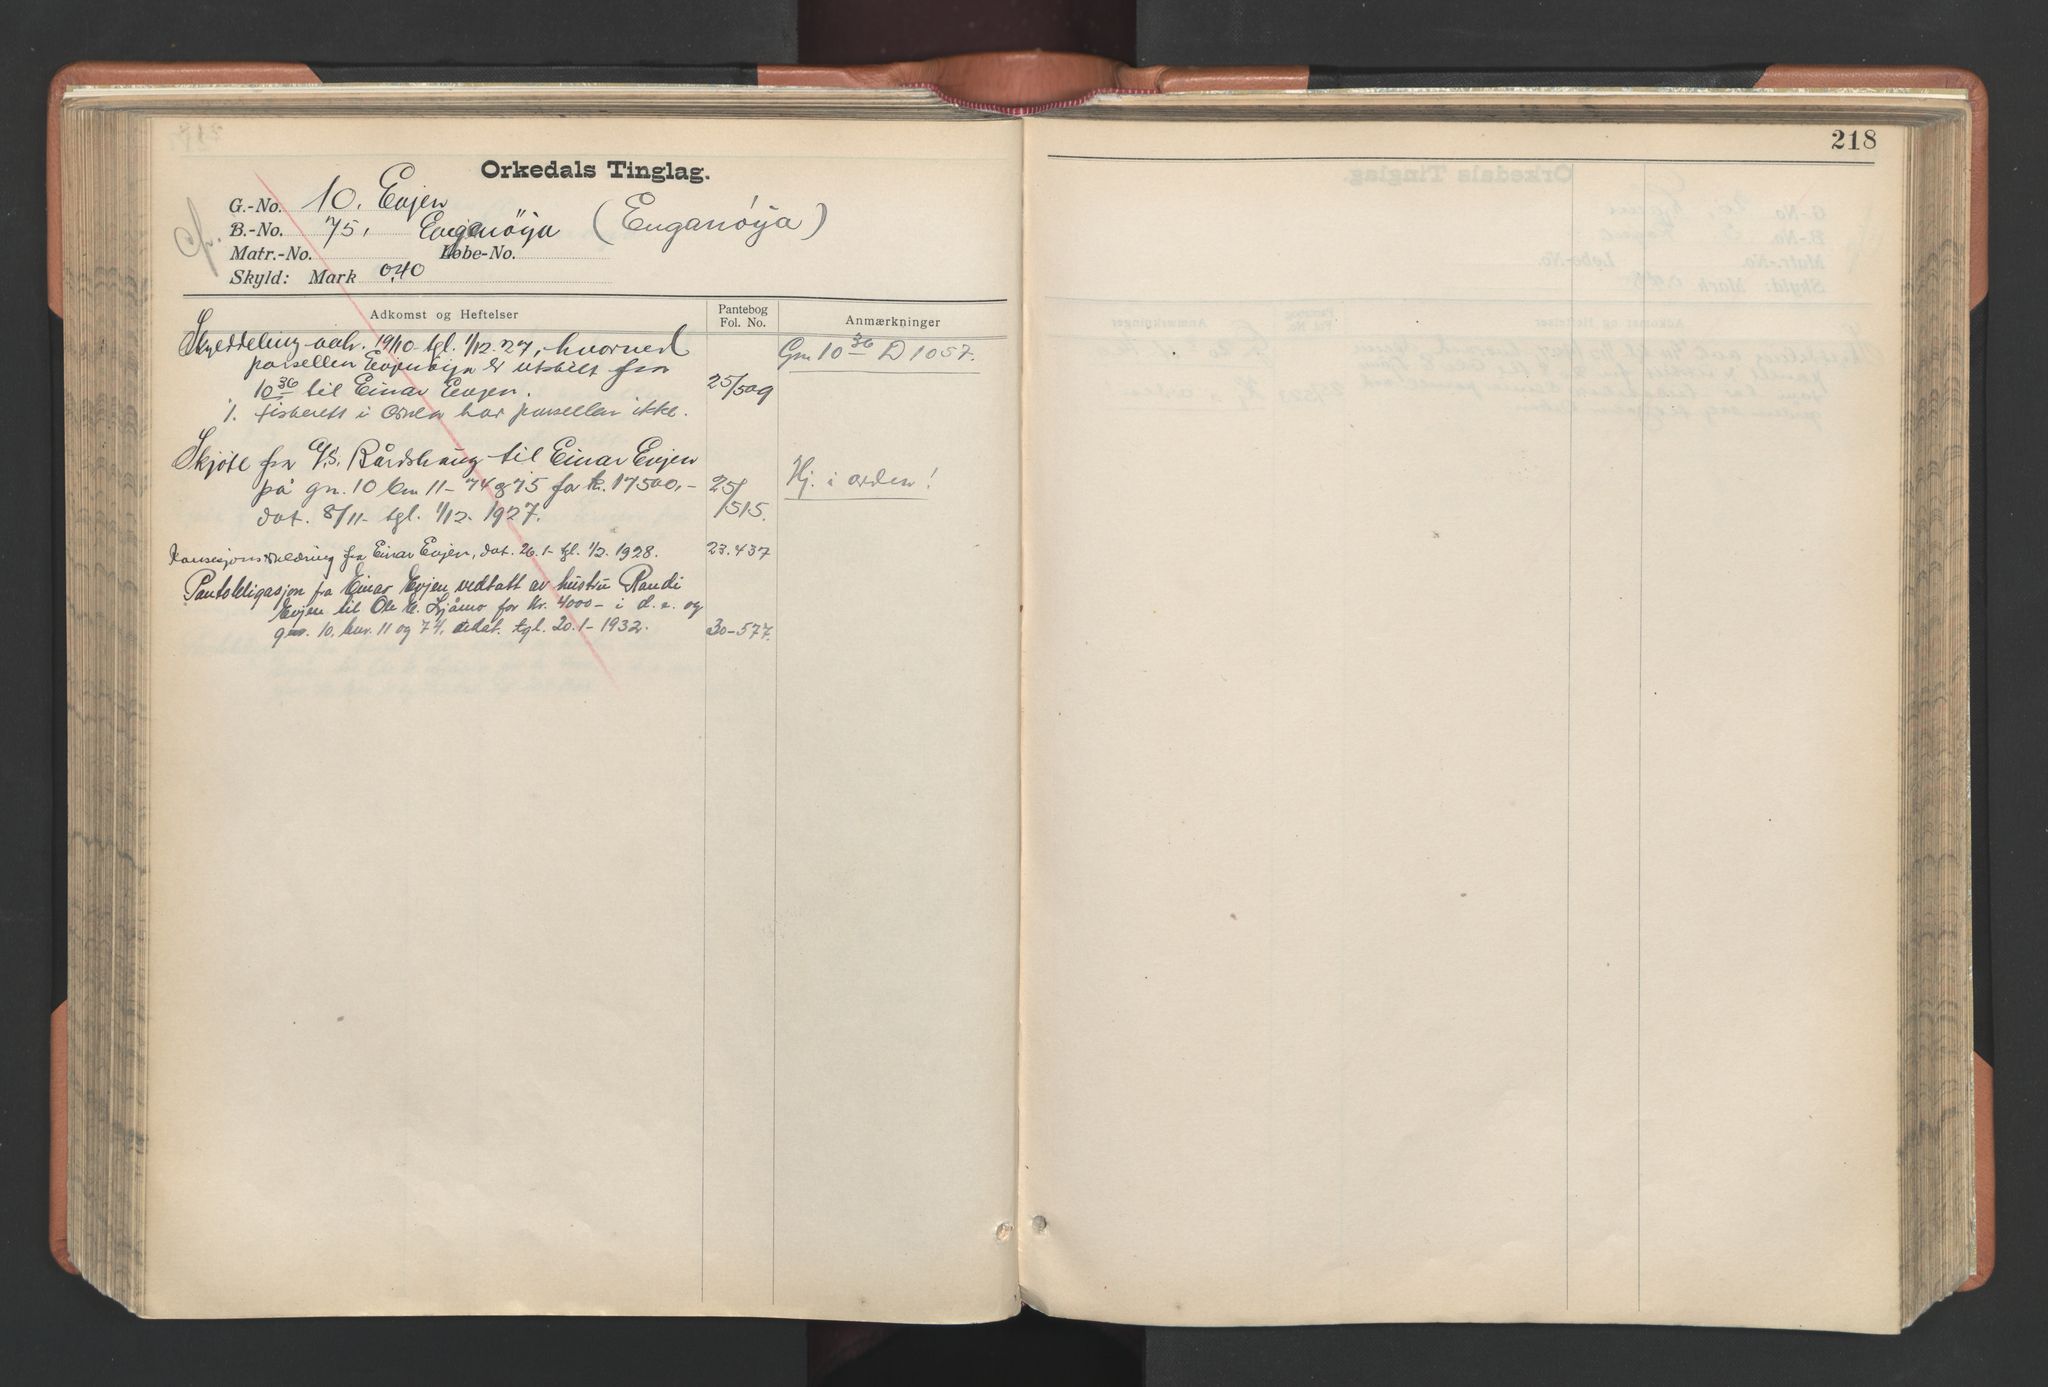 218
Orkedals Tinglag.
G.-No. 10. Evjen
B.-No. 75. Evjenöya (Enganöya)
Matr.-No. Løbe-No.
Skyld: Mark 0,40
Adkomst og Heftelser
Pantebog Fol. No.
Anmærkninger
Skylddeling avh. 19/10 tgl. 1/12. 27, hvorved
parsellen Evjenöya er utskilt fra
10 36 til Einar Evjen. 25/509
1. fiskerett i Orkla har parsellen ikke.
Gnr. 10 36 D 1057.
Skjöte fra A/S. Bårdshaug til Einar Evjen
på gn. 10 bnr 11 - 74 og 75 for kr. 17500,- 25/515.
dat. 8/11 - tgl. 1/12. 1927.
Hj. i orden!
Konsesjonserklæring fra Einar Evjen, dat. 26.1 - tgl. 1/2. 1928. 23.437
Pantobligasjon fra Einar Evjen vedtatt av hustru Randi
Evjen til Ole E. for kr. 4000 - i d. e. og
gnr. 10, bnr. 11 og 74, tgl. 20.1 - 1932. 30-577.